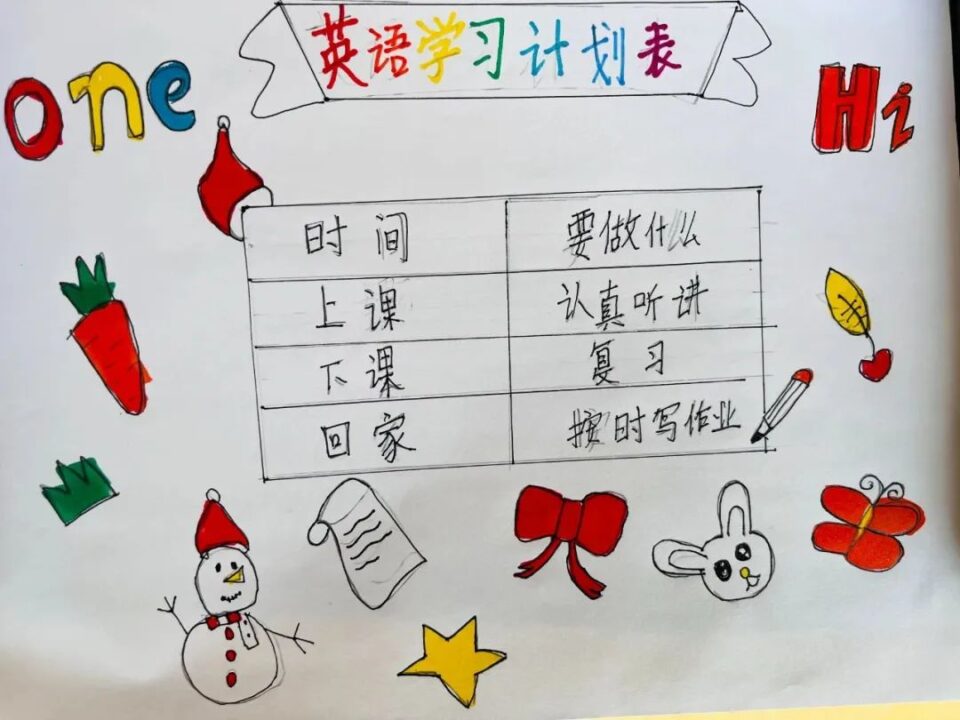 英语学习计划表
one
Hi
时间 要做什么
上课 认真听讲
下课 复习
回家 按时写作业